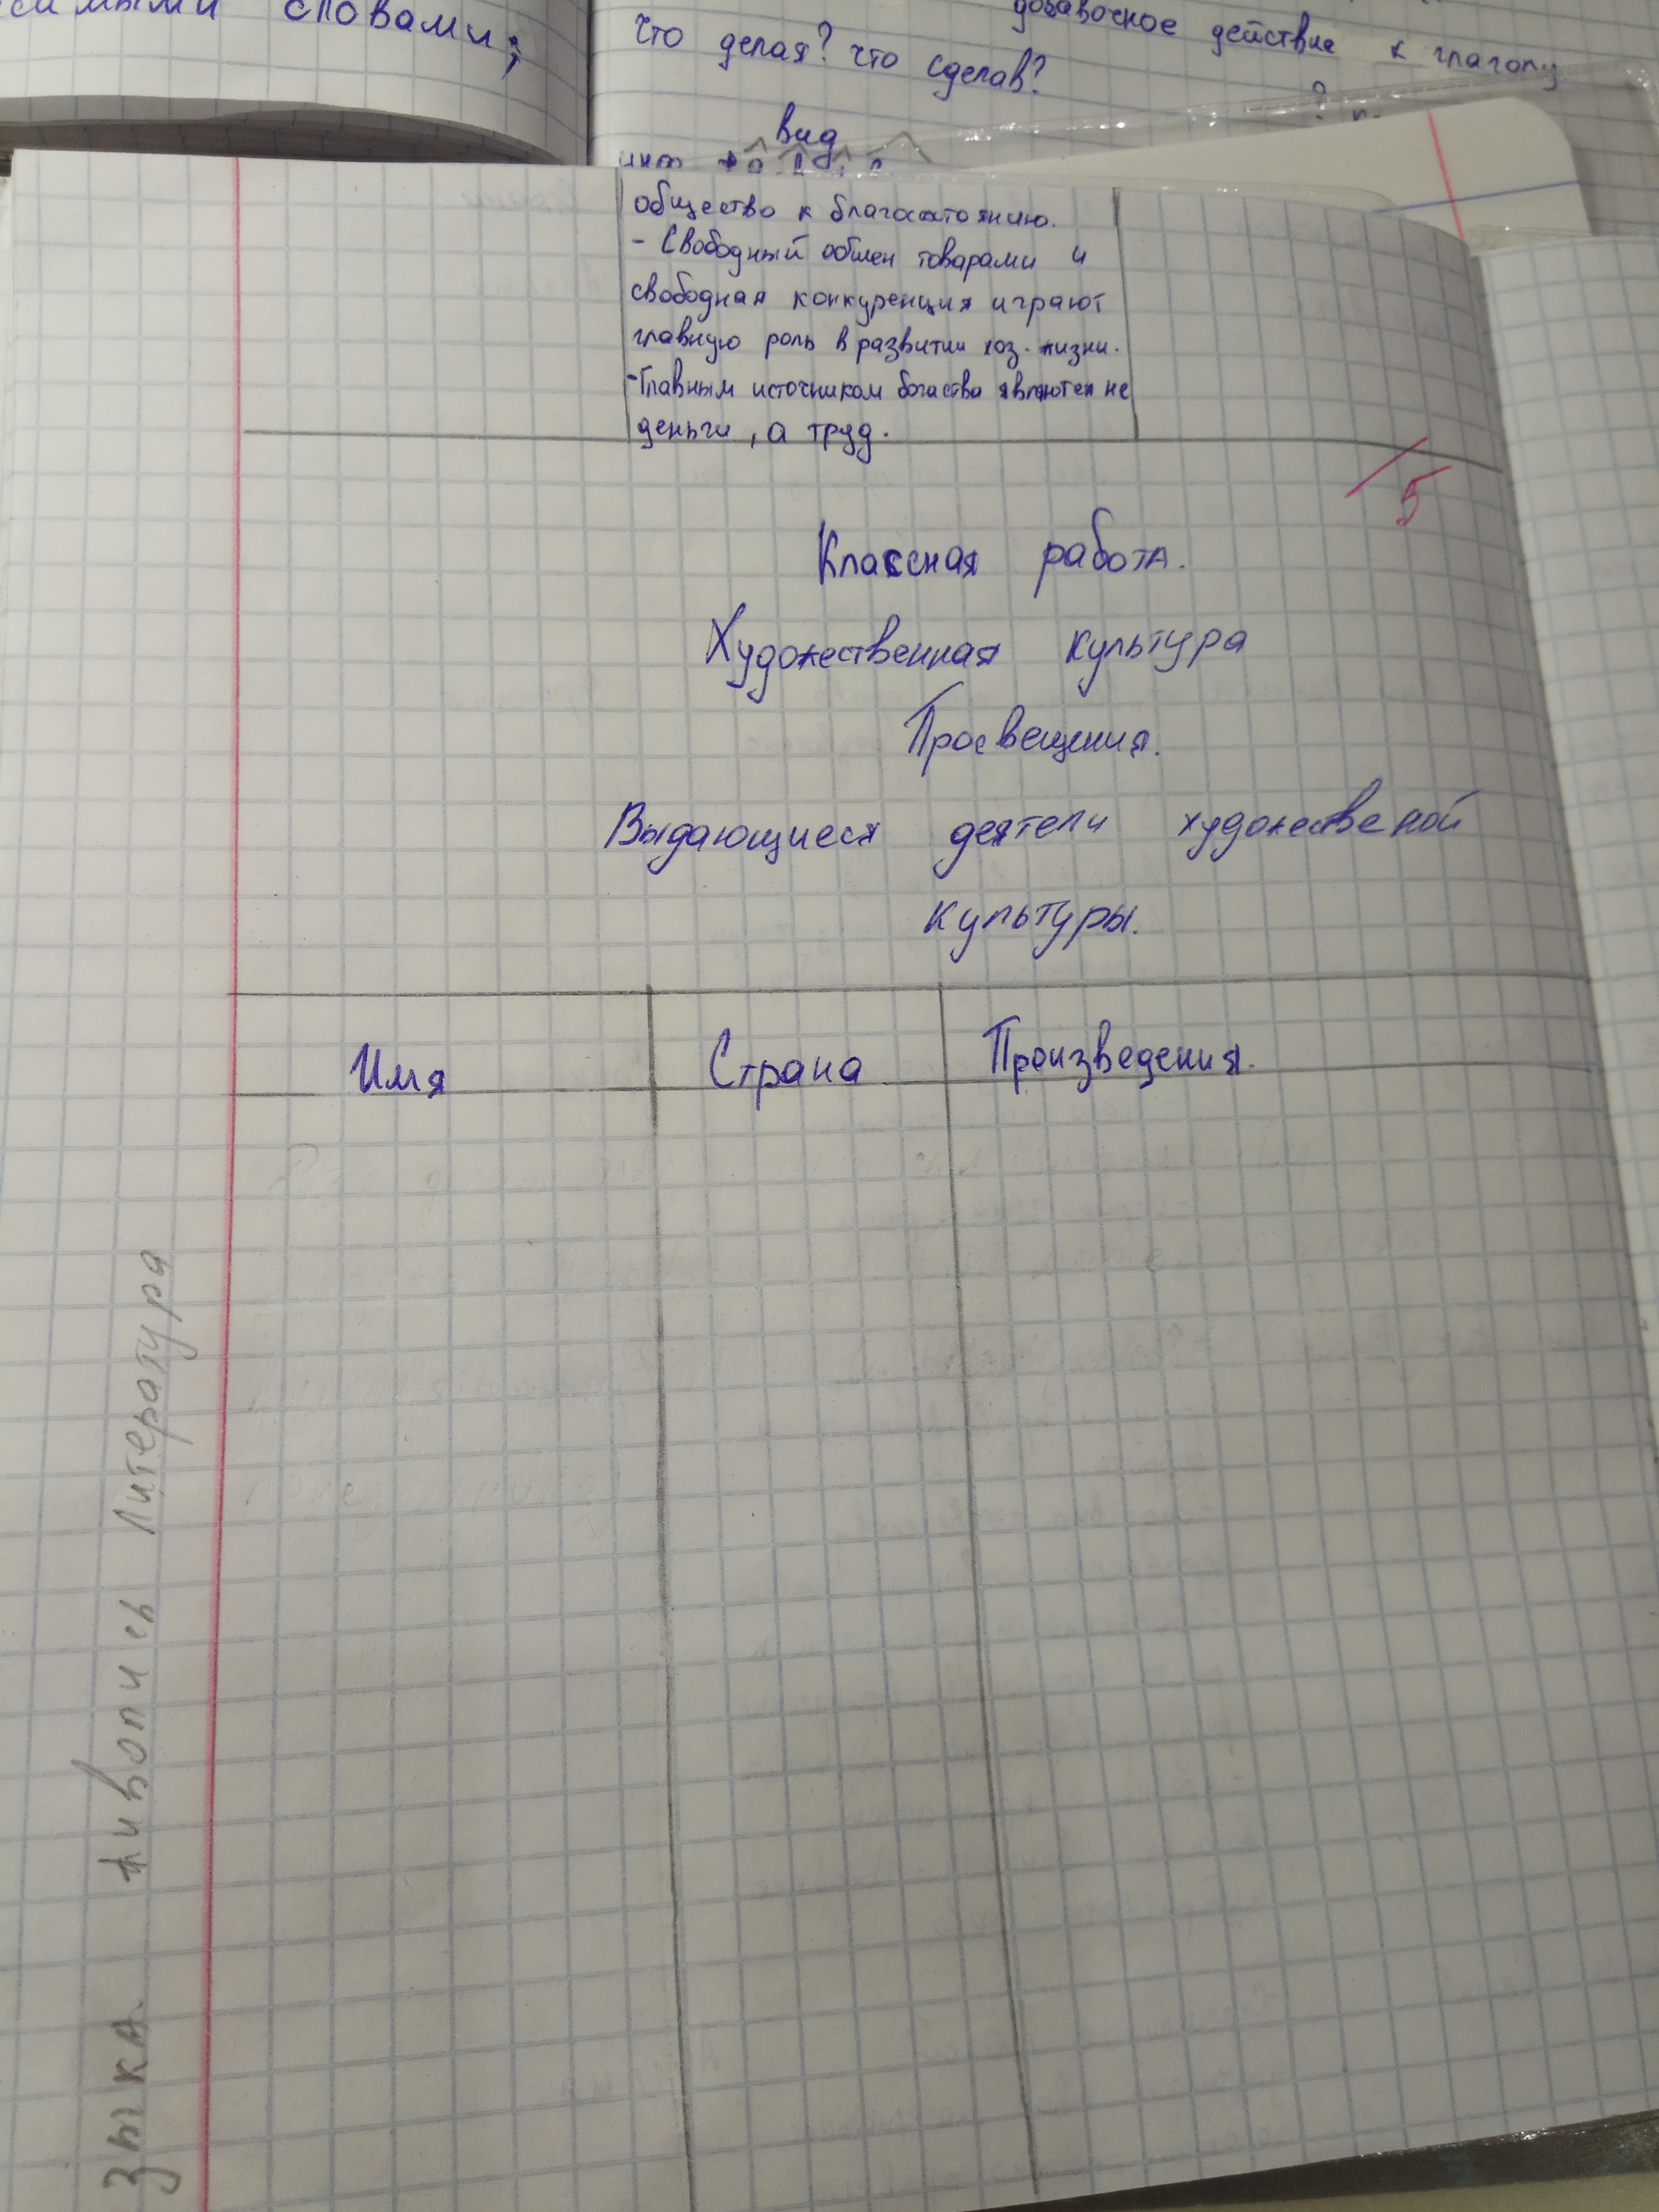 словами;
добавочное действие к глаголу
Что делая? что сделав?
вид
общество к благосостоянию.
- Свободный обмен товарами и
свободная конкуренция играют
главную роль в развитии хоз. жизни.
- Главным источником богаства являются не
деньги, а труд.
5
Классная работа.
Художественная культура
Просвещения.
Выдающиеся деятели художественой
культуры.
Имя Страна Произведения.
Литература
живопись
зыка.